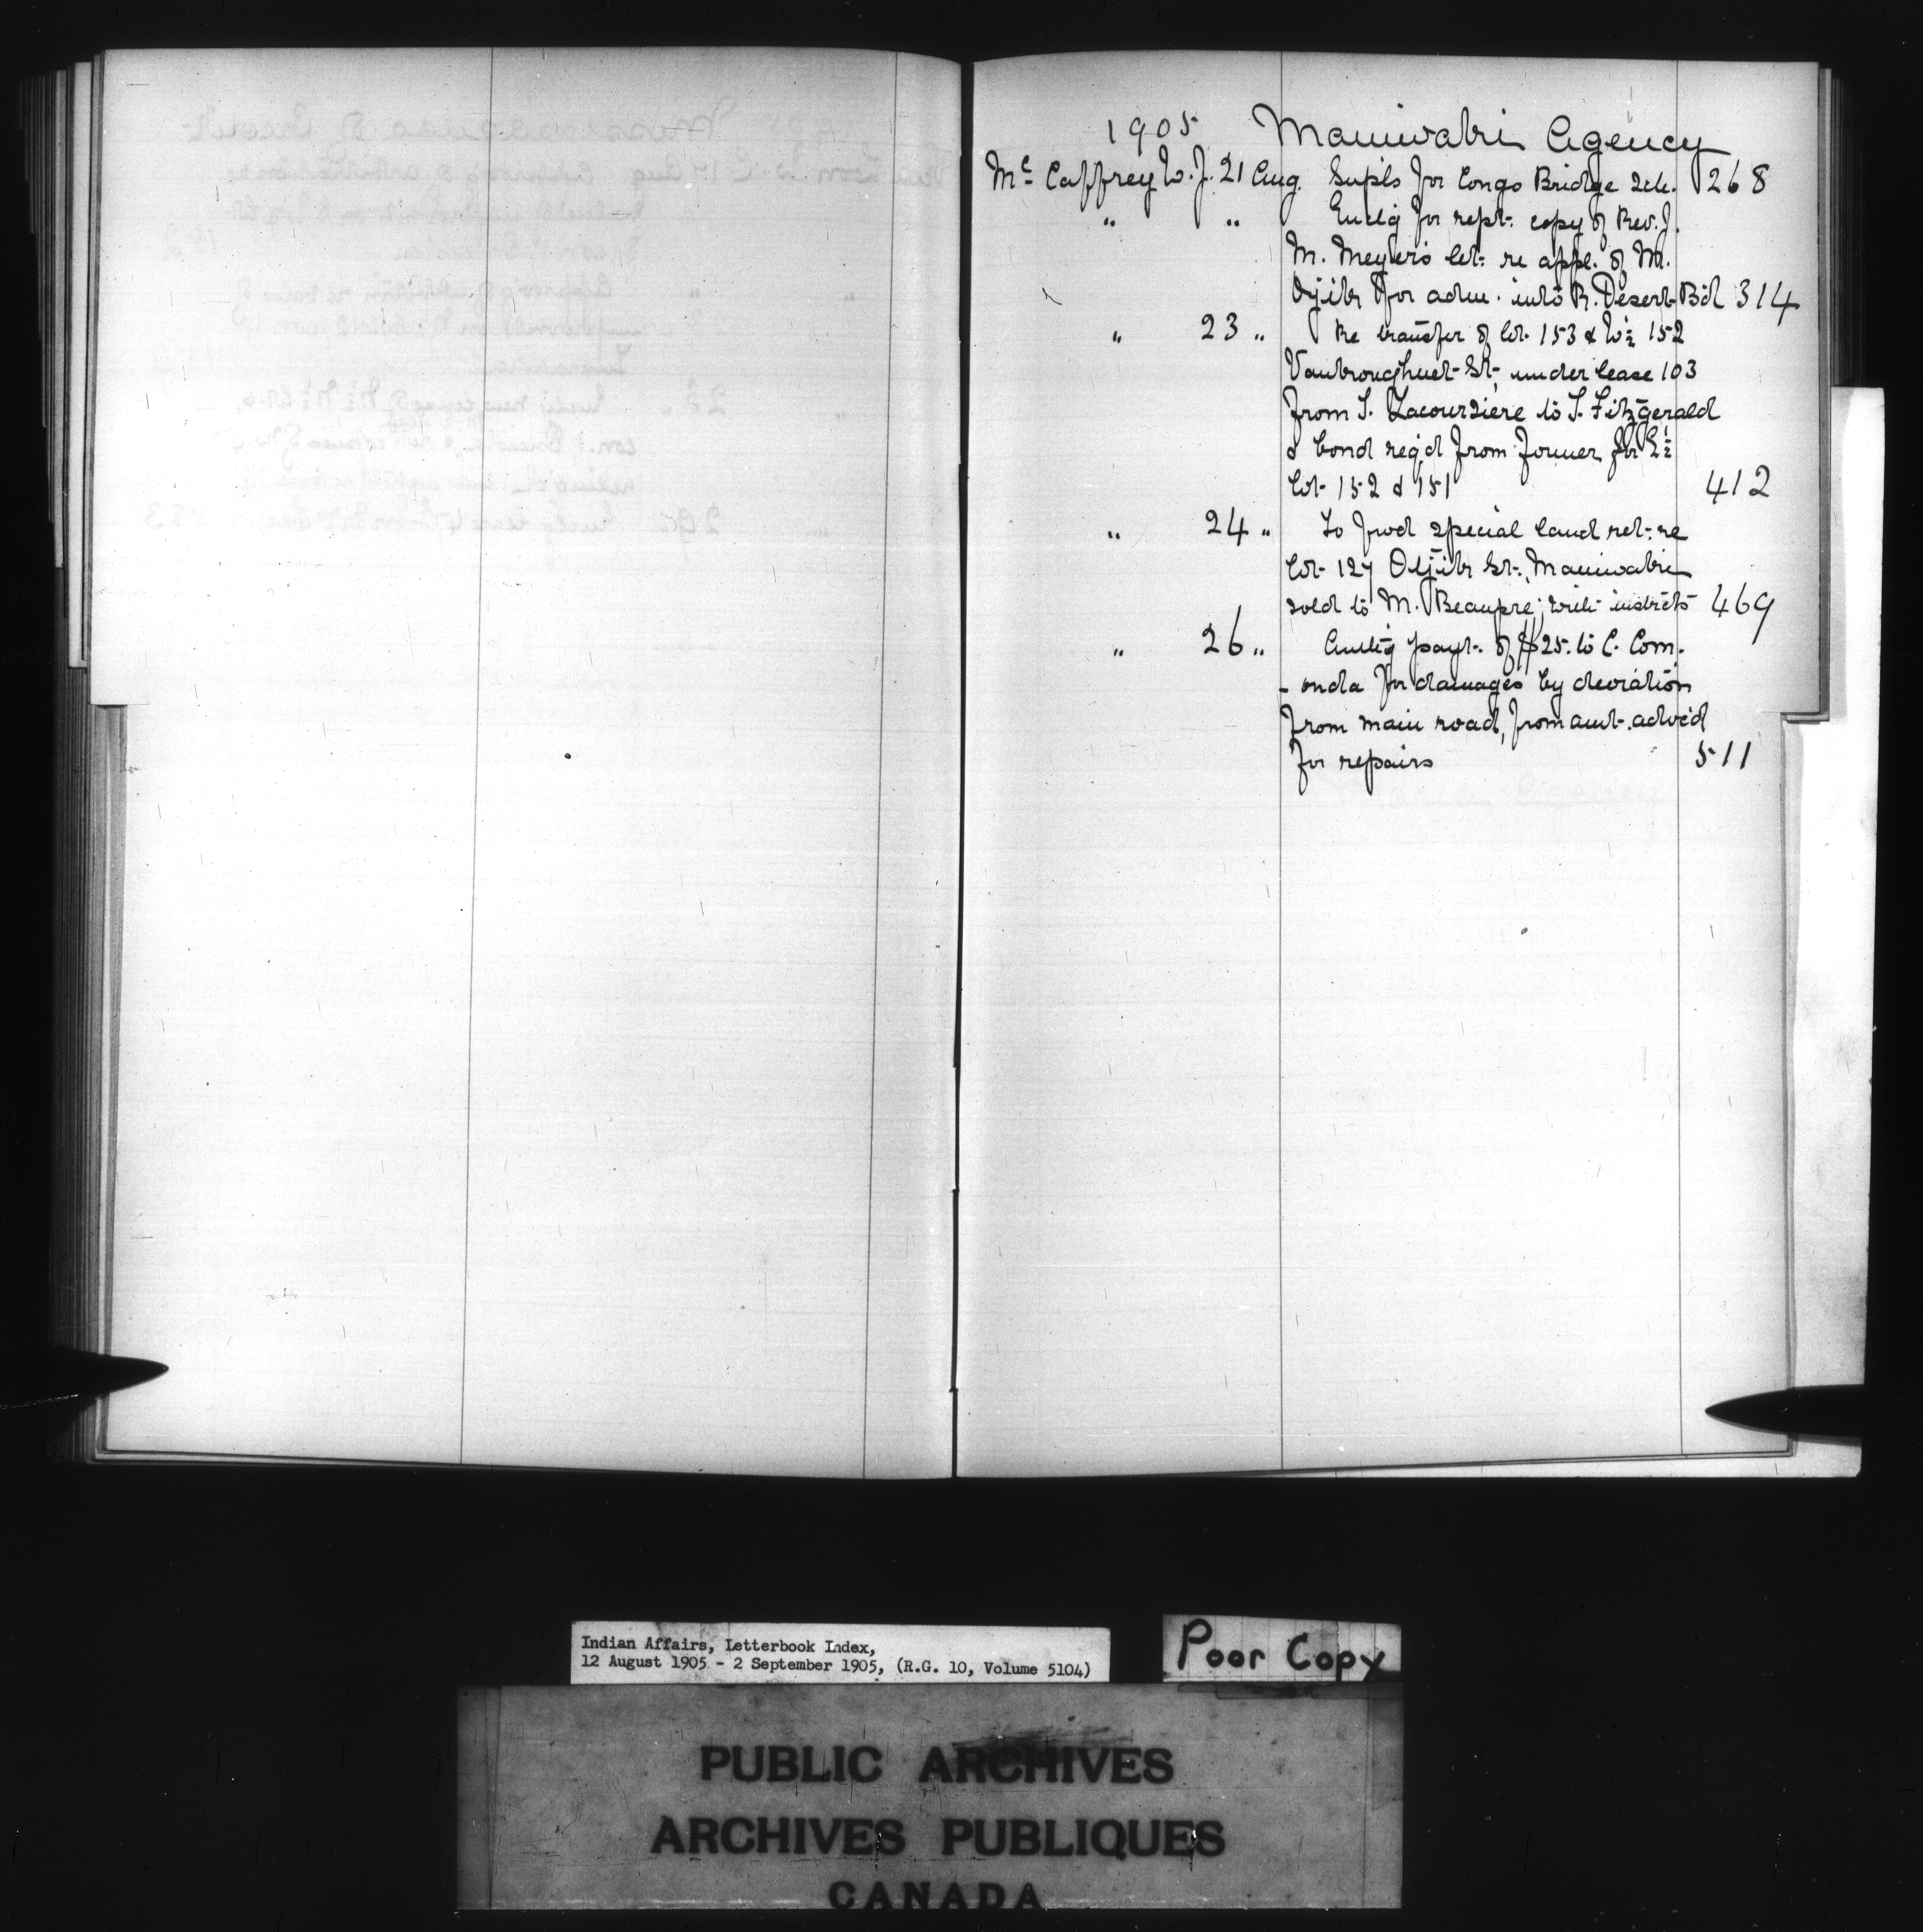 1905 Maniwaki Agency
Mc Caffrey W. J. 21 Aug. Supls for Congo Bridge Sch. 268
" " Enclg for rept. copy of Rev. J.
M. Meyler's let. re appl. of M.
Ojik for adm. into R. Desert Bd 314
" 23 " Re transfer of lot 153 & W½ 152
St., under lease 103
from S. Lacoursiere to S. Fitzgerald
& bond req'd from former for E½
lot 152 & 151 412
" 24 " To fwd special land ret. re
lot 127 St., Maniwaki
sold to M. Beaupre; with instrcts 469
" 26 " Authg payt. of $25. to C. Com.
- onda for damages by deviation
from main road, from amt. advc'd
for repairs 511
Indian Affairs, Letterbook Index,
12 August 1905 - 2 September 1905, (R.G. 10, Volume 5104)
Poor Copy
PUBLIC ARCHIVES
ARCHIVES PUBLIQUES
CANADA